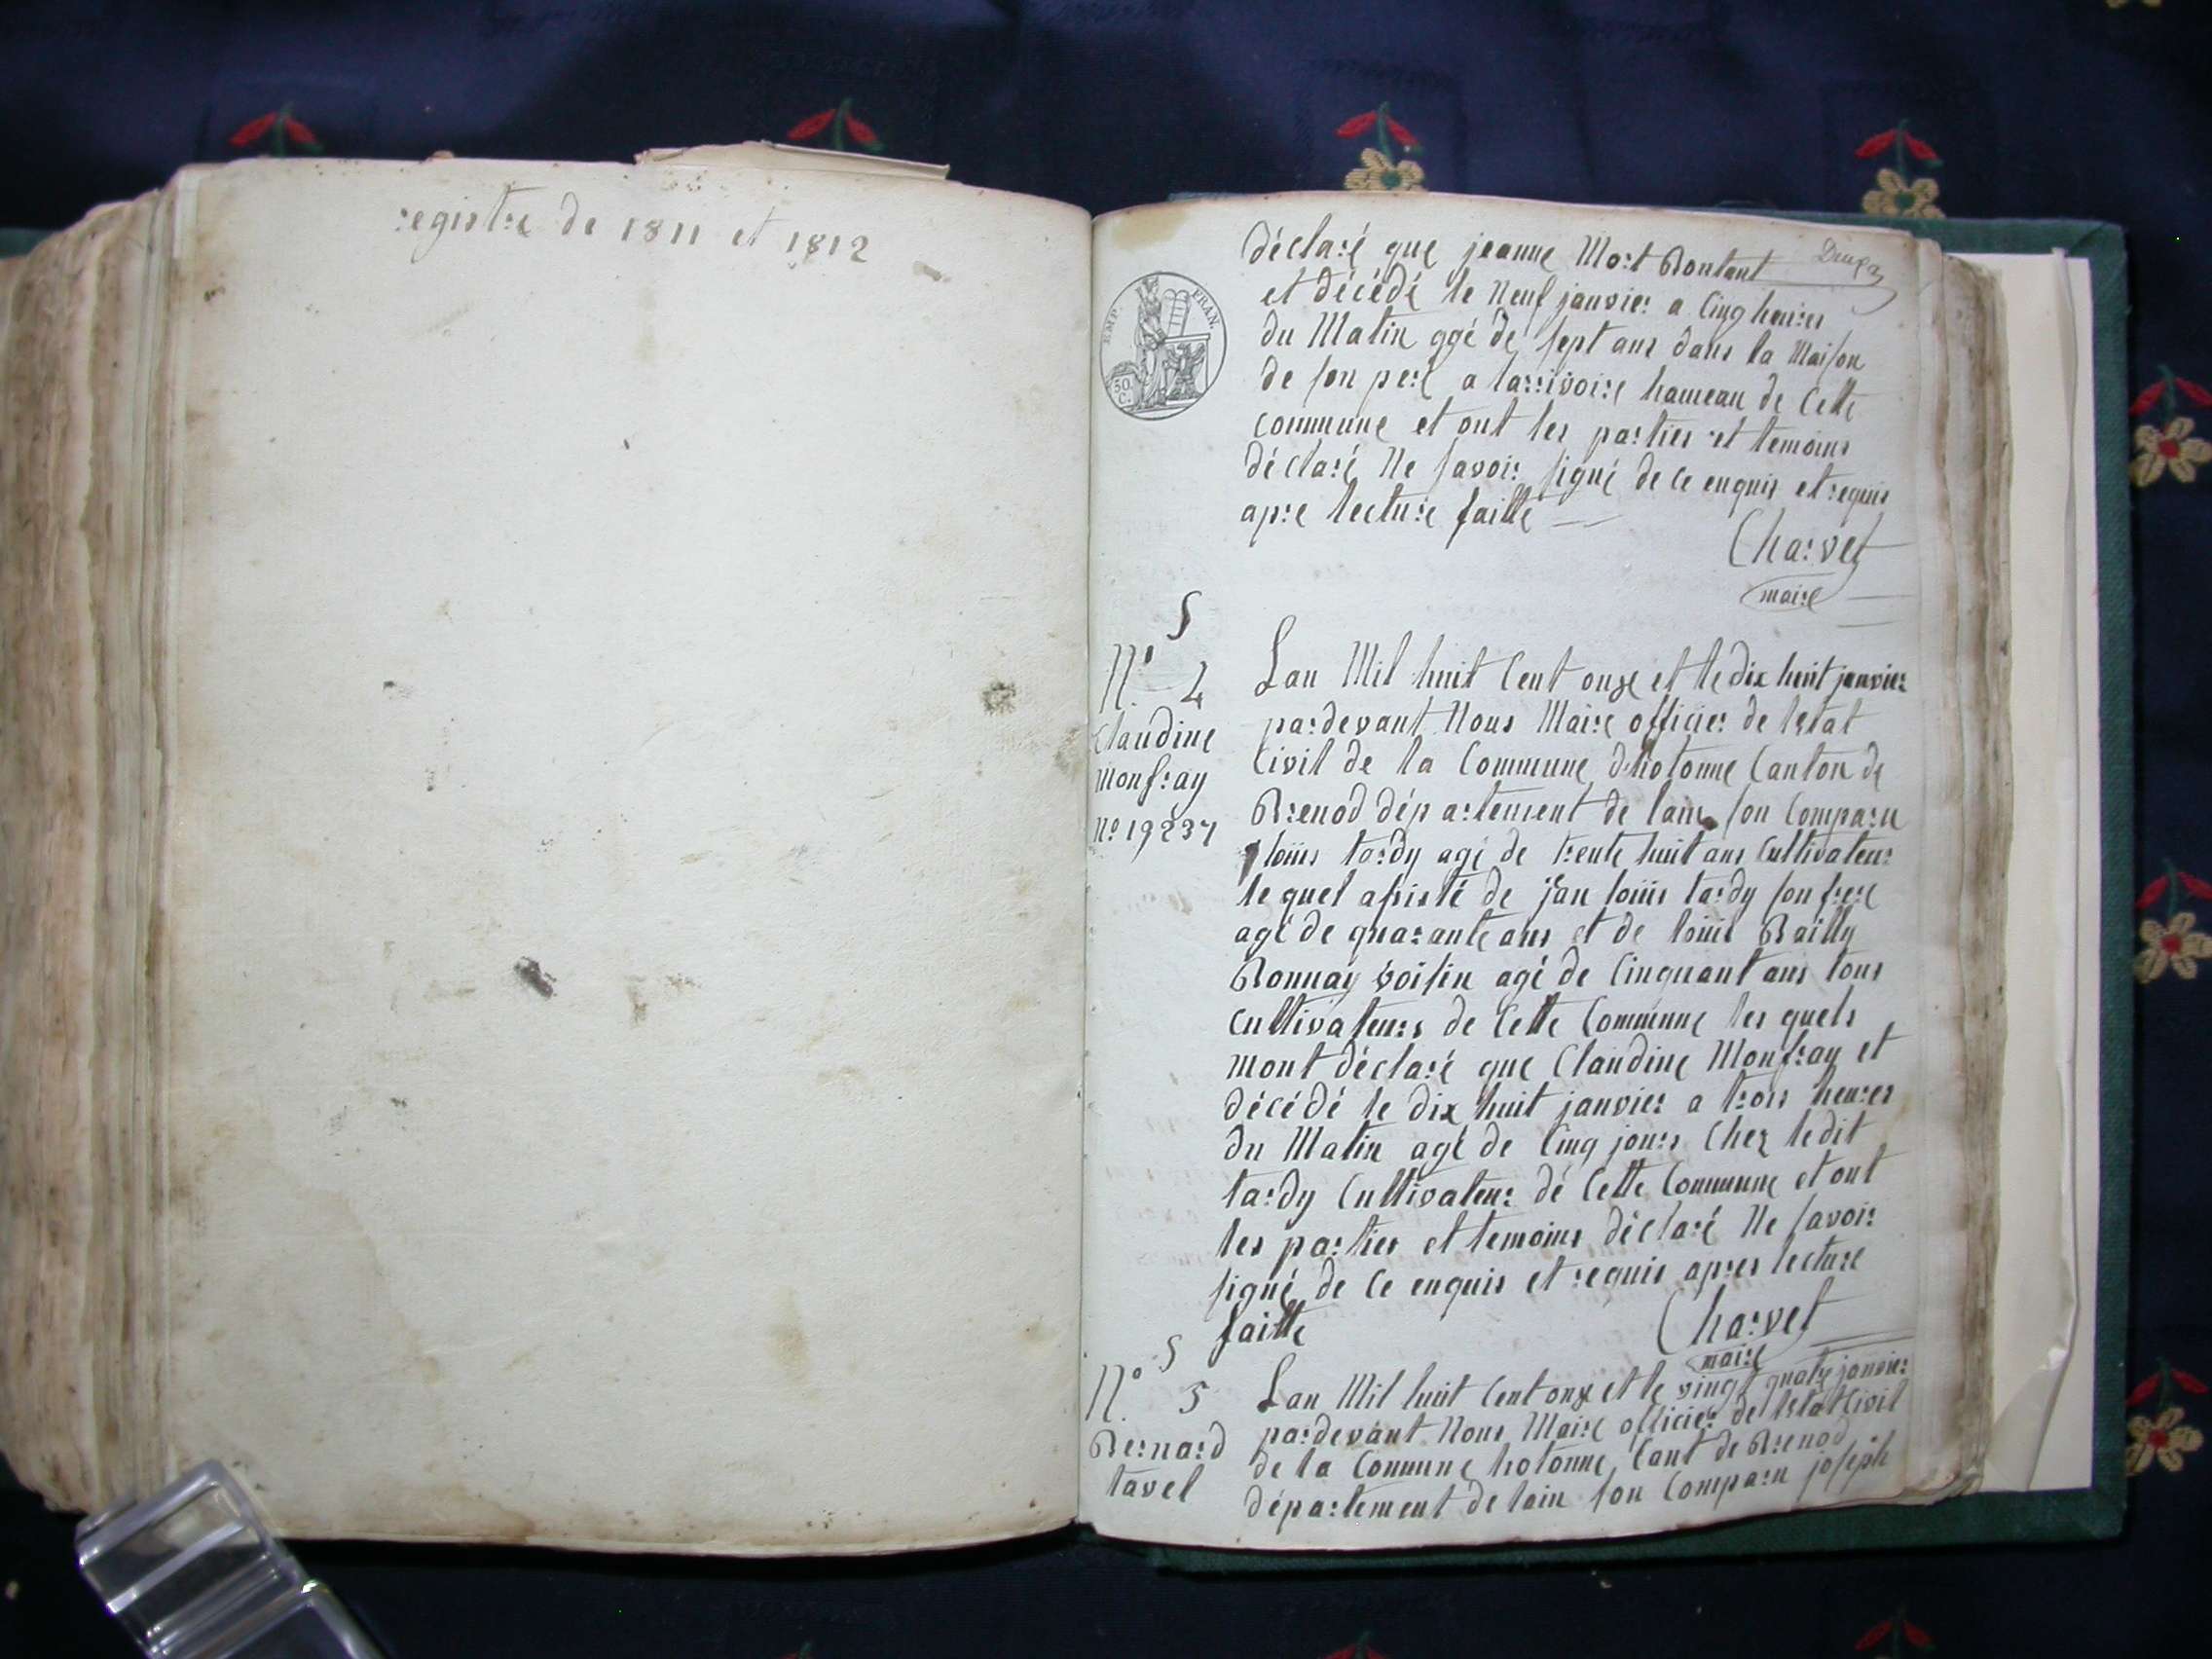 registre de 1811 et 1812
déclaré que jeanne Mort Bontant
et décédé le Neuf janvier a Cinq heures
du Matin agé de sept ans dans la Maison
de son pere a larrivoire hameau de Cette
Commune et ont les parties et temoins
déclaré Ne savoir signé de ce enquis et requis
apre lecture faitte
Charvet
maire
EMP. FRAN.
50 C.
S
N° 4
Claudine
Monfray
N° 19237
Lan Mil huit Cent onze et le dix huit janvier
pardevant Nous Maire officier de letat
Civil de la Commune dhotonne Canton de
Brenod département de lain son Comparu
loüis tardy agé de trente huit ans Cultivateur
le quel assisté de jan loüis tardy son frere
agé de quarante ans et de loüis Bailly
Bonnay voisin agé de Cinquant ans tous
Cultivateurs de Cette Commune les quels
mont déclaré que Claudine Monfray et
décédé le dix huit janvier a trois heures
du Matin agé de Cinq jours Chez ledit
tardy Cultivateur dé Cette Commune et ont
les parties et temoins déclaré Ne savoir
signé de Ce enquis et requis apres lecture
faitte
Charvet
maire
S
N° 5
Bernard
tavel
Lan Mil huit Cent onze et le vingt janvier
pardevant Nous Maire officier de letat Civil
de la Commune hotonne Cant de Brenod
département de lain son Comparu joseph